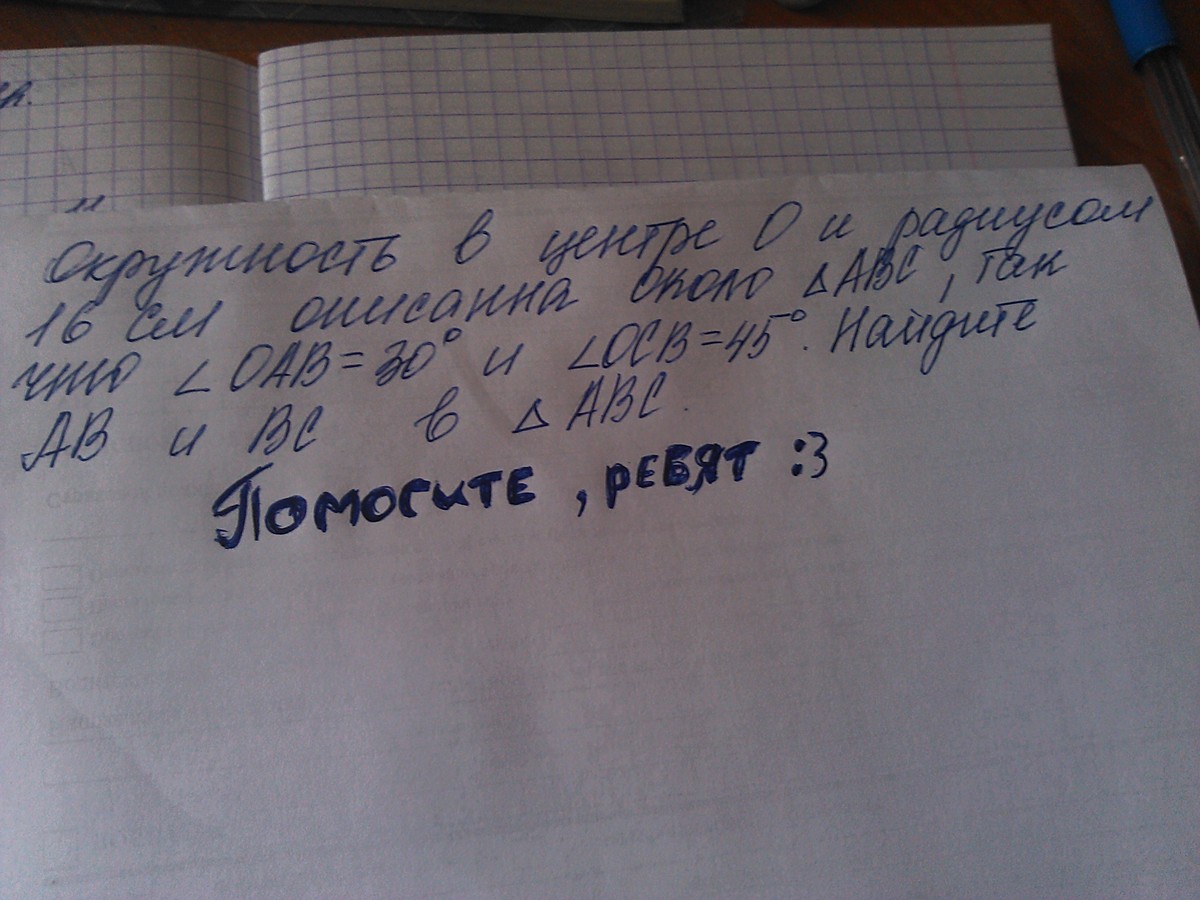 Окружность в центре О и радиусом
16 см описанна около △ABC, так
что ∠OAB=30° и ∠OCB=45°. Найдите
AB и BC в △ABC.
Помогите, ребят :3